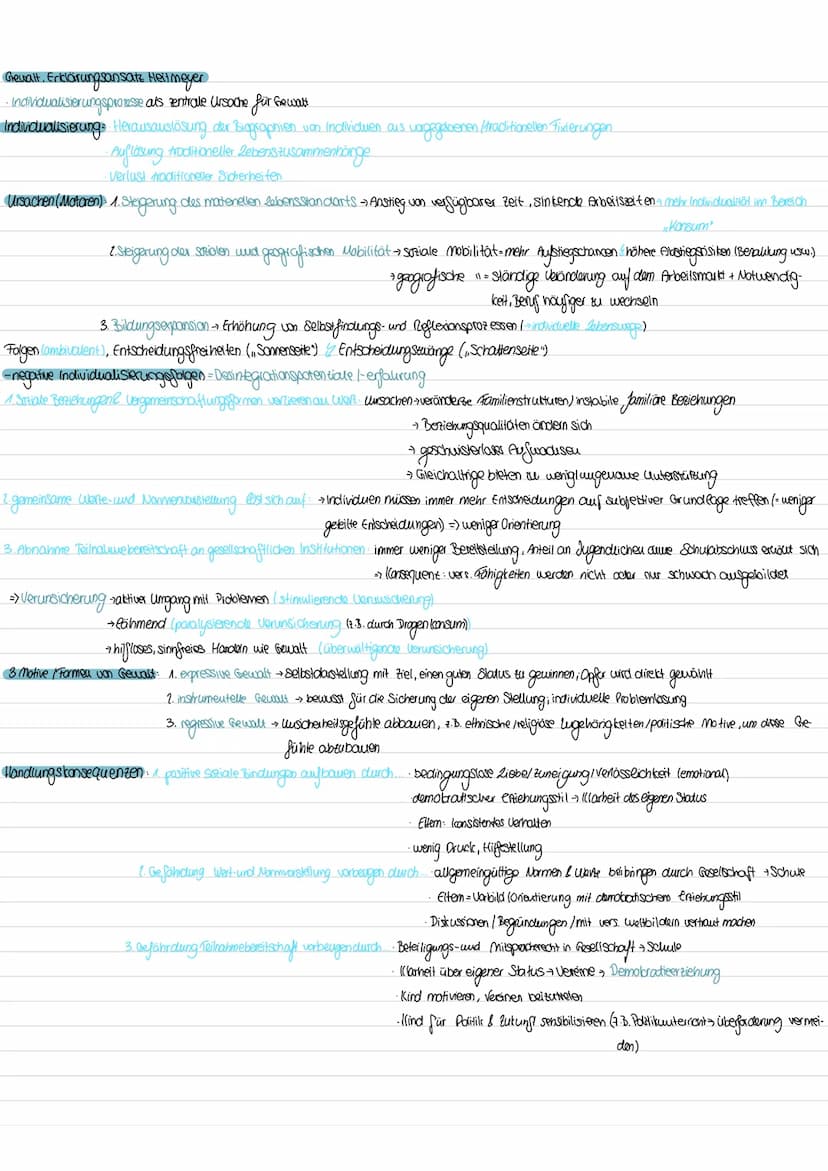 Gewalt. Erklärungsansatz Heitmeyer
· Individualisierungsprozesse als zentrale Ursache für Gewalt
Individualisierung: Herausauslösung der Biographien von Individuen aus vorgegebenen/traditionellen Fixierungen
· Auflösung traditioneller Lebenszusammenhänge
· Verlust traditioneller Sicherheiten
Ursachen (Motoren) 1. Steigerung des materiellen Lebensstandarts → Anstieg von verfügbarer Zeit, sinkende Arbeitszeiten → mehr Individualität im Bereich
„Konsum“
2. Steigerung der sozialen und geografischen Mobilität → soziale Mobilität = mehr Aufstiegschancen & höhere Abstiegsrisiken (Bezahlung usw.)
→ geografische " = ständige Veränderung auf dem Arbeitsmarkt + Notwendig-
keit, Beruf häufiger zu wechseln
3. Bildungsexpansion → Erhöhung von Selbstfindungs- und Reflexionsprozessen (→ individuelle Lebenswege)
Folgen (ambivalent), Entscheidungsfreiheiten („Sonnenseite“) Entscheidungszwänge („Schattenseite“)
- negative Individualisierungsfolgen = Desintegrationspotentiale /-erfahrung
1. Soziale Beziehungen & Vergemeinschaftungsformen verlieren an Wert: Ursachen → veränderte Familienstrukturen / instabile, familiäre Beziehungen
→ Beziehungsqualitäten ändern sich
→ geschwisterloses Aufwachsen
→ Gleichaltrige bieten zu wenig/ungenaue Unterstützung
2. gemeinsame Werte- und Normenvorstellung löst sich auf: → Individuen müssen immer mehr Entscheidungen auf subjektiver Grundlage treffen (= weniger
geteilte Entscheidungen) => weniger Orientierung
3. Abnahme Teilnahmebereitschaft an gesellschaftlichen Institutionen: immer weniger Bereitstellung, Anteil an Jugendlichen ohne Schulabschluss erhöht sich
=> Konsequent: vers. Fähigkeiten werden nicht oder nur schwach ausgebildet
=> Verunsicherung → aktiver Umgang mit Problemen (stimulierende Verunsicherung)
→ lähmend (paralysierende Verunsicherung (z.B. durch Drogenkonsum))
→ hilfloses, sinnfreies Handeln wie Gewalt (überwältigende Verunsicherung)
3 Motive / Formen von Gewalt: 1. expressive Gewalt → Selbstdarstellung mit Ziel, einen guten Status zu gewinnen; Opfer wird direkt gewählt
2. instrumentelle Gewalt → bewusst für die Sicherung der eigenen Stellung; individuelle Problemlösung
3. regressive Gewalt → Unsicherheitsgefühle abbauen, z.B. ethnische/religiöse Zugehörigkeiten/politische Motive, um diese Ge-
fühle abzubauen
Handlungskonsequenzen: 1. positive soziale Bindungen aufbauen durch... · bedingungslose Liebe/Zuneigung/Verlässlichkeit (emotional)
demokratischer Erziehungsstil → Klarheit des eigenen Status
· Eltern: konsistentes Verhalten
· wenig Druck, Hilfestellung
2. Gefährdung Wert- und Normvorstellung vorbeugen durch... · allgemeingültige Normen & Werte beibingen durch Gesellschaft → Schule
· Eltern = Vorbild (Orientierung mit demokratischem Erziehungsstil
· Diskussionen / Begründungen / mit vers. Weltbildern vertraut machen
3. Gefährdung Teilnahmebereitschaft vorbeugen durch... · Beteiligungs- und Mitspracherecht in Gesellschaft → Schule
· Klarheit über eigener Status → Vereine → Demokratieerziehung
· Kind motivieren, Vereinen beizutreten
· Kind für Politik & Zukunft sensibilisieren (z.B. Politikunterricht → überforderung vermei-
den)